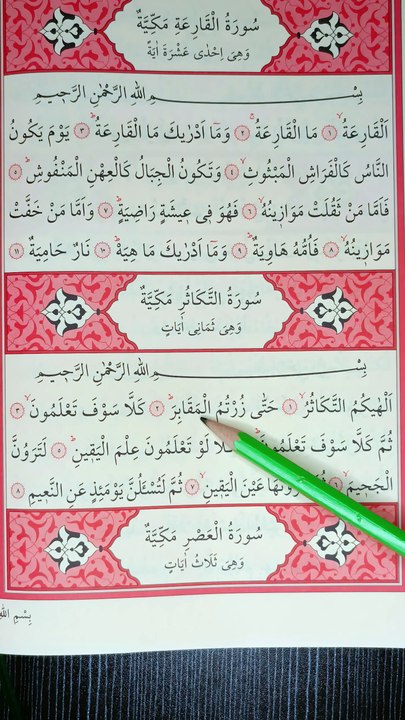 سُورَةُ الْقَارِعَةِ مَكِّيَّةٌ
وَهِىَ اِحْدٰى عَشْرَةَ اٰيَةً
بِسْمِ اللهِ الرَّحْمٰنِ الرَّحٖيمِ
اَلْقَارِعَةُ ۙ ﴿١﴾ مَا الْقَارِعَةُ ۚ ﴿٢﴾ وَمَٓا اَدْرٰيكَ مَا الْقَارِعَةُ ۜ ﴿٣﴾ يَوْمَ يَكُونُ
النَّاسُ كَالْفَرَاشِ الْمَبْثُوثِ ۙ ﴿٤﴾ وَتَكُونُ الْجِبَالُ كَالْعِهْنِ الْمَنْفُوشِ ۜ ﴿٥﴾
فَاَمَّا مَنْ ثَقُلَتْ مَوَازٖينُهُ ۙ ﴿٦﴾ فَهُوَ فٖى عٖيشَةٍ رَاضِيَةٍ ۜ ﴿٧﴾ وَاَمَّا مَنْ خَفَّتْ
مَوَازٖينُهُ ۙ ﴿٨﴾ فَاُمُّهُ هَاوِيَةٌ ۜ ﴿٩﴾ وَمَٓا اَدْرٰيكَ مَا هِيَهْ ۜ ﴿١٠﴾ نَارٌ حَامِيَةٌ ﴿١١﴾
سُورَةُ التَّكَاثُرِ مَكِّيَّةٌ
وَهِىَ ثَمَانِى اٰيَاتٍ
بِسْمِ اللهِ الرَّحْمٰنِ الرَّحٖيمِ
اَلْهٰيكُمُ التَّكَاثُرُ ۙ ﴿١﴾ حَتّٰى زُرْتُمُ الْمَقَابِرَ ۜ ﴿٢﴾ كَلَّا سَوْفَ تَعْلَمُونَ ۙ ﴿٣﴾
ثُمَّ كَلَّا سَوْفَ تَعْلَمُونَ كَلَّا لَوْ تَعْلَمُونَ عِلْمَ الْيَقٖينِ ۜ ﴿٥﴾ لَتَرَوُنَّ
الْجَحٖيمَ ۙ ﴿٦﴾ عَيْنَ الْيَقٖينِ ۙ ﴿٧﴾ ثُمَّ لَتُسْـَٔلُنَّ يَوْمَئِذٍ عَنِ النَّعٖيمِ ﴿٨﴾
سُورَةُ الْعَصْرِ مَكِّيَّةٌ
وَهِىَ ثَلَاثُ اٰيَاتٍ
بِسْمِ اللهِ